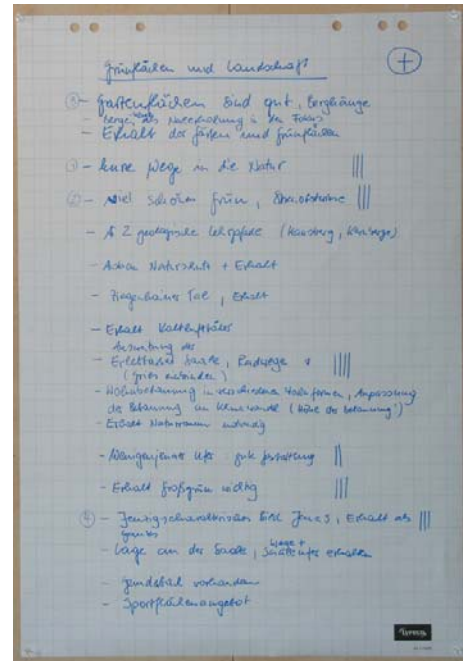 Grünflächen und Landschaft
+
③ - Gartenflächen sind gut, Berghänge
- Berge als Naherholung in den Fokus
- Erhalt der Gärten und Grünflächen
- kurze Wege in die Natur |||
② - viel schönes Grün, |||
- 2 geologische Lehrpfade (Hausberg, Kernberge)
- Naturschutz + Erhalt
- Ziegenhainer Tal, Erhalt
- Erhalt Kaltlufttäler
- Erlebbarkeit Saale, Radwege ||||
(Gries einbinden)
- Wohnbebauung in verschiedenen Wohnformen, Anpassung
der Bebauung an Klimawandel (Höhe der Bebauung)
- Erhalt Naturraum
- Wenigenjenaer Ufer gute Gestaltung ||
- Erhalt Großgrün wichtig |||
④ - Bild Jenas, Erhalt als |||
Ganzes
- Lage an der Saale, Wege + erhalten
- vorhanden
- Sportflächenangebot